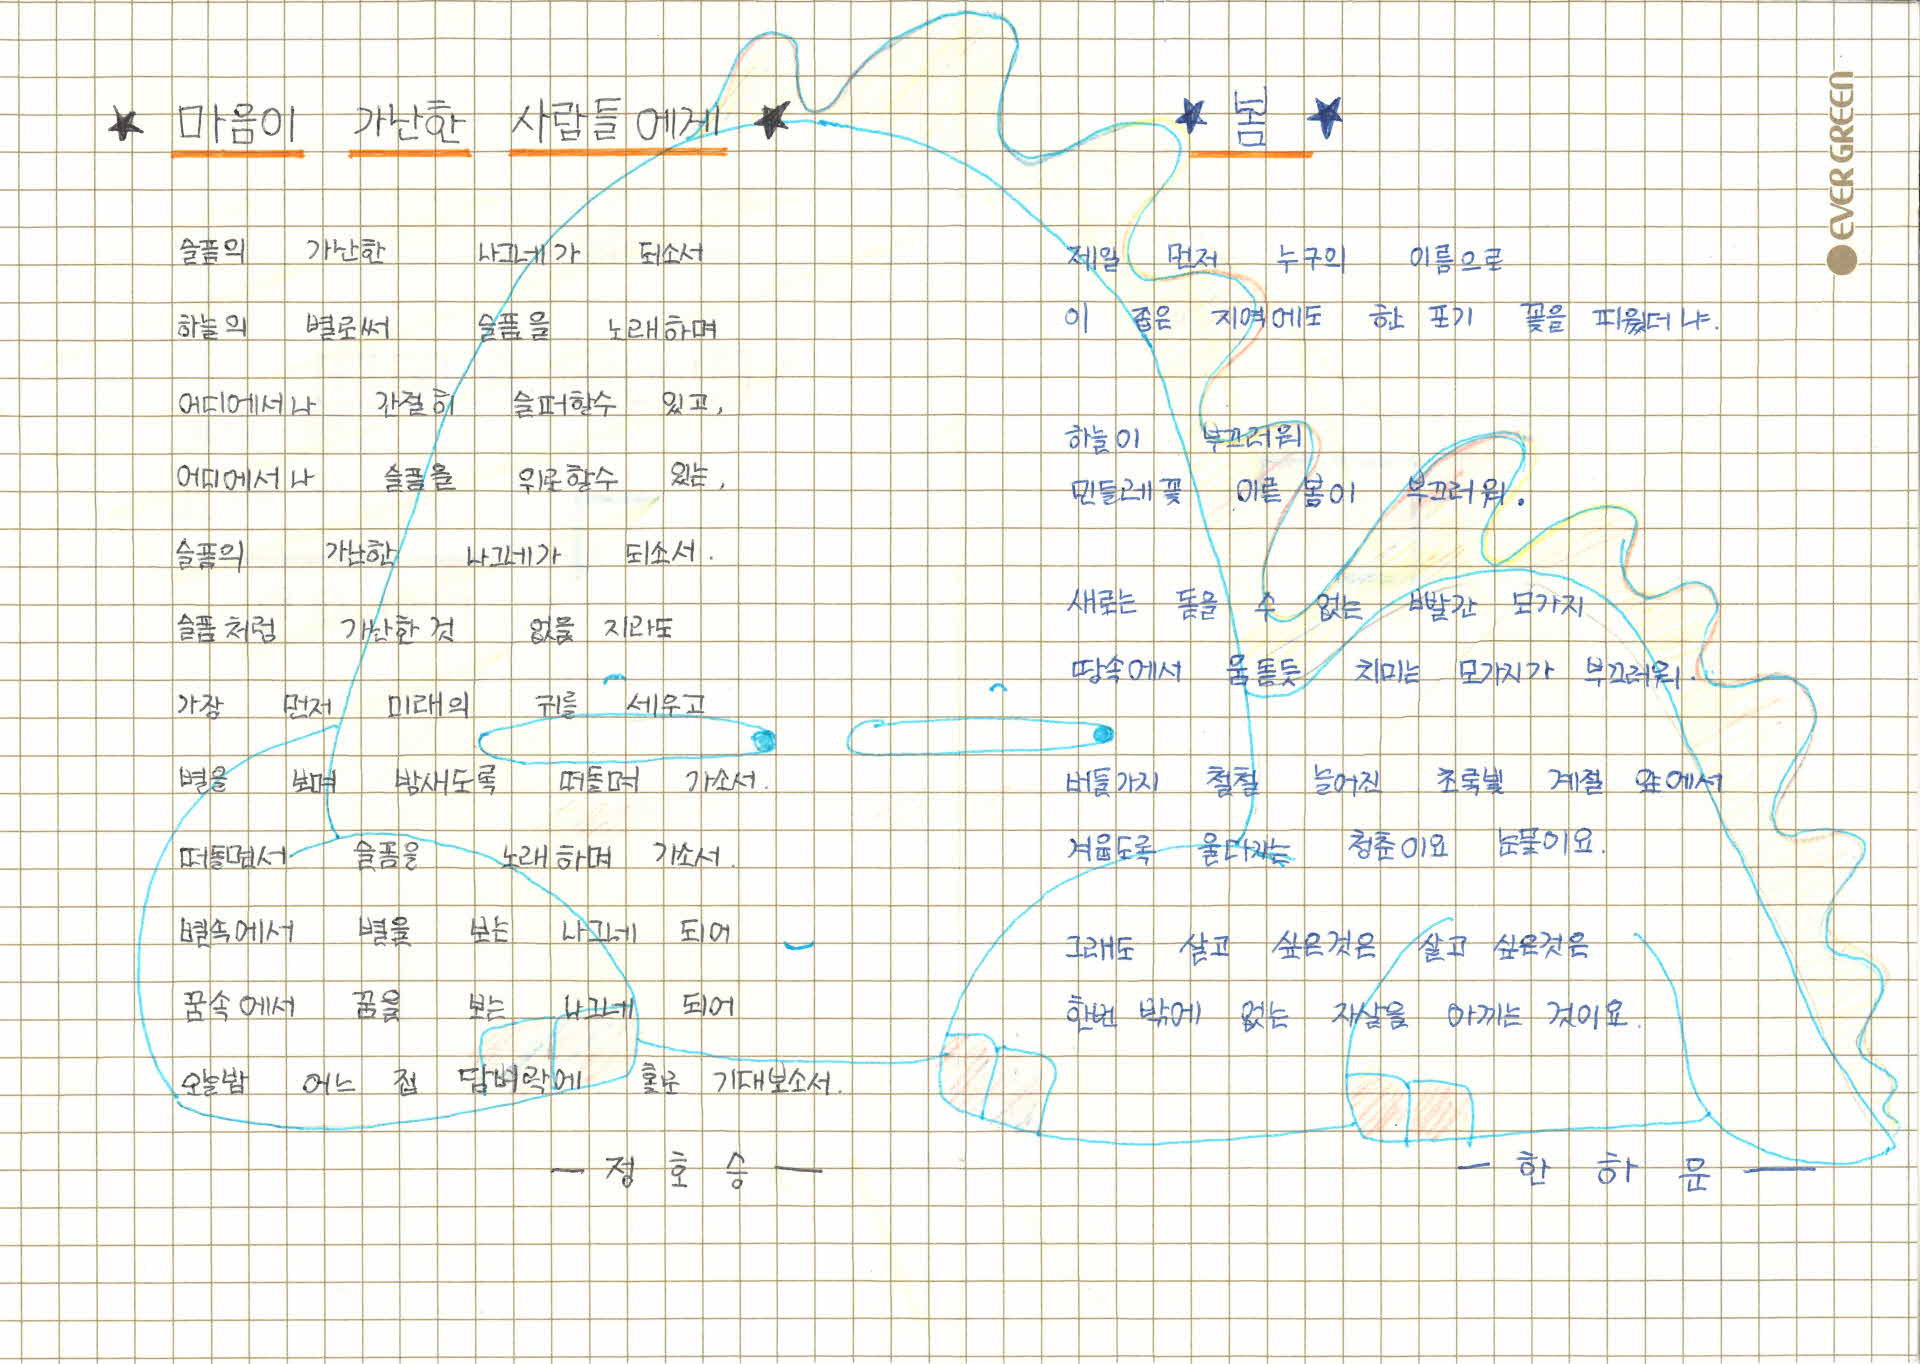 ★ 마음이 가난한 사람들에게 ★
슬픔의 가난한 나그네가 되소서
하늘의 별로써 슬픔을 노래하며
어디에서나 간절히 슬퍼할수 있고,
어디에서나 슬픔을 위로할수 있는,
슬픔의 가난한 나그네가 되소서.
슬픔처럼 가난한 것 없을 지라도
가장 먼저 미래의 귀를 세우고
별을 보며 밤새도록 떠돌며 가소서.
떠돌면서 슬픔을 노래하며 가소서.
별속에서 별을 보는 나그네 되어
꿈속에서 꿈을 보는 나그네 되어
오늘밤 어느 집 담벼락에 홀로 기대보소서.
— 정 호 승 —
★ 봄 ★
제일 먼저 누구의 이름으로
이 좁은 지역에도 한 포기 꽃을 피웠더냐.
하늘이 부끄러워
민들레꽃 이른 봄이 부끄러워.
새로는 돋을 수 없는 빨간 모가지
땅속에서 움돋듯 치미는 모가지가 부끄러워.
버들가지 철철 늘어진 초록빛 계절 앞에서
겨웁도록 울다가는 청춘이요 눈물이요.
그래도 살고 싶은것은 살고 싶은것은
한번 밖에 없는 자살을 아끼는 것이요.
— 한 하 운 —
EVERGREEN